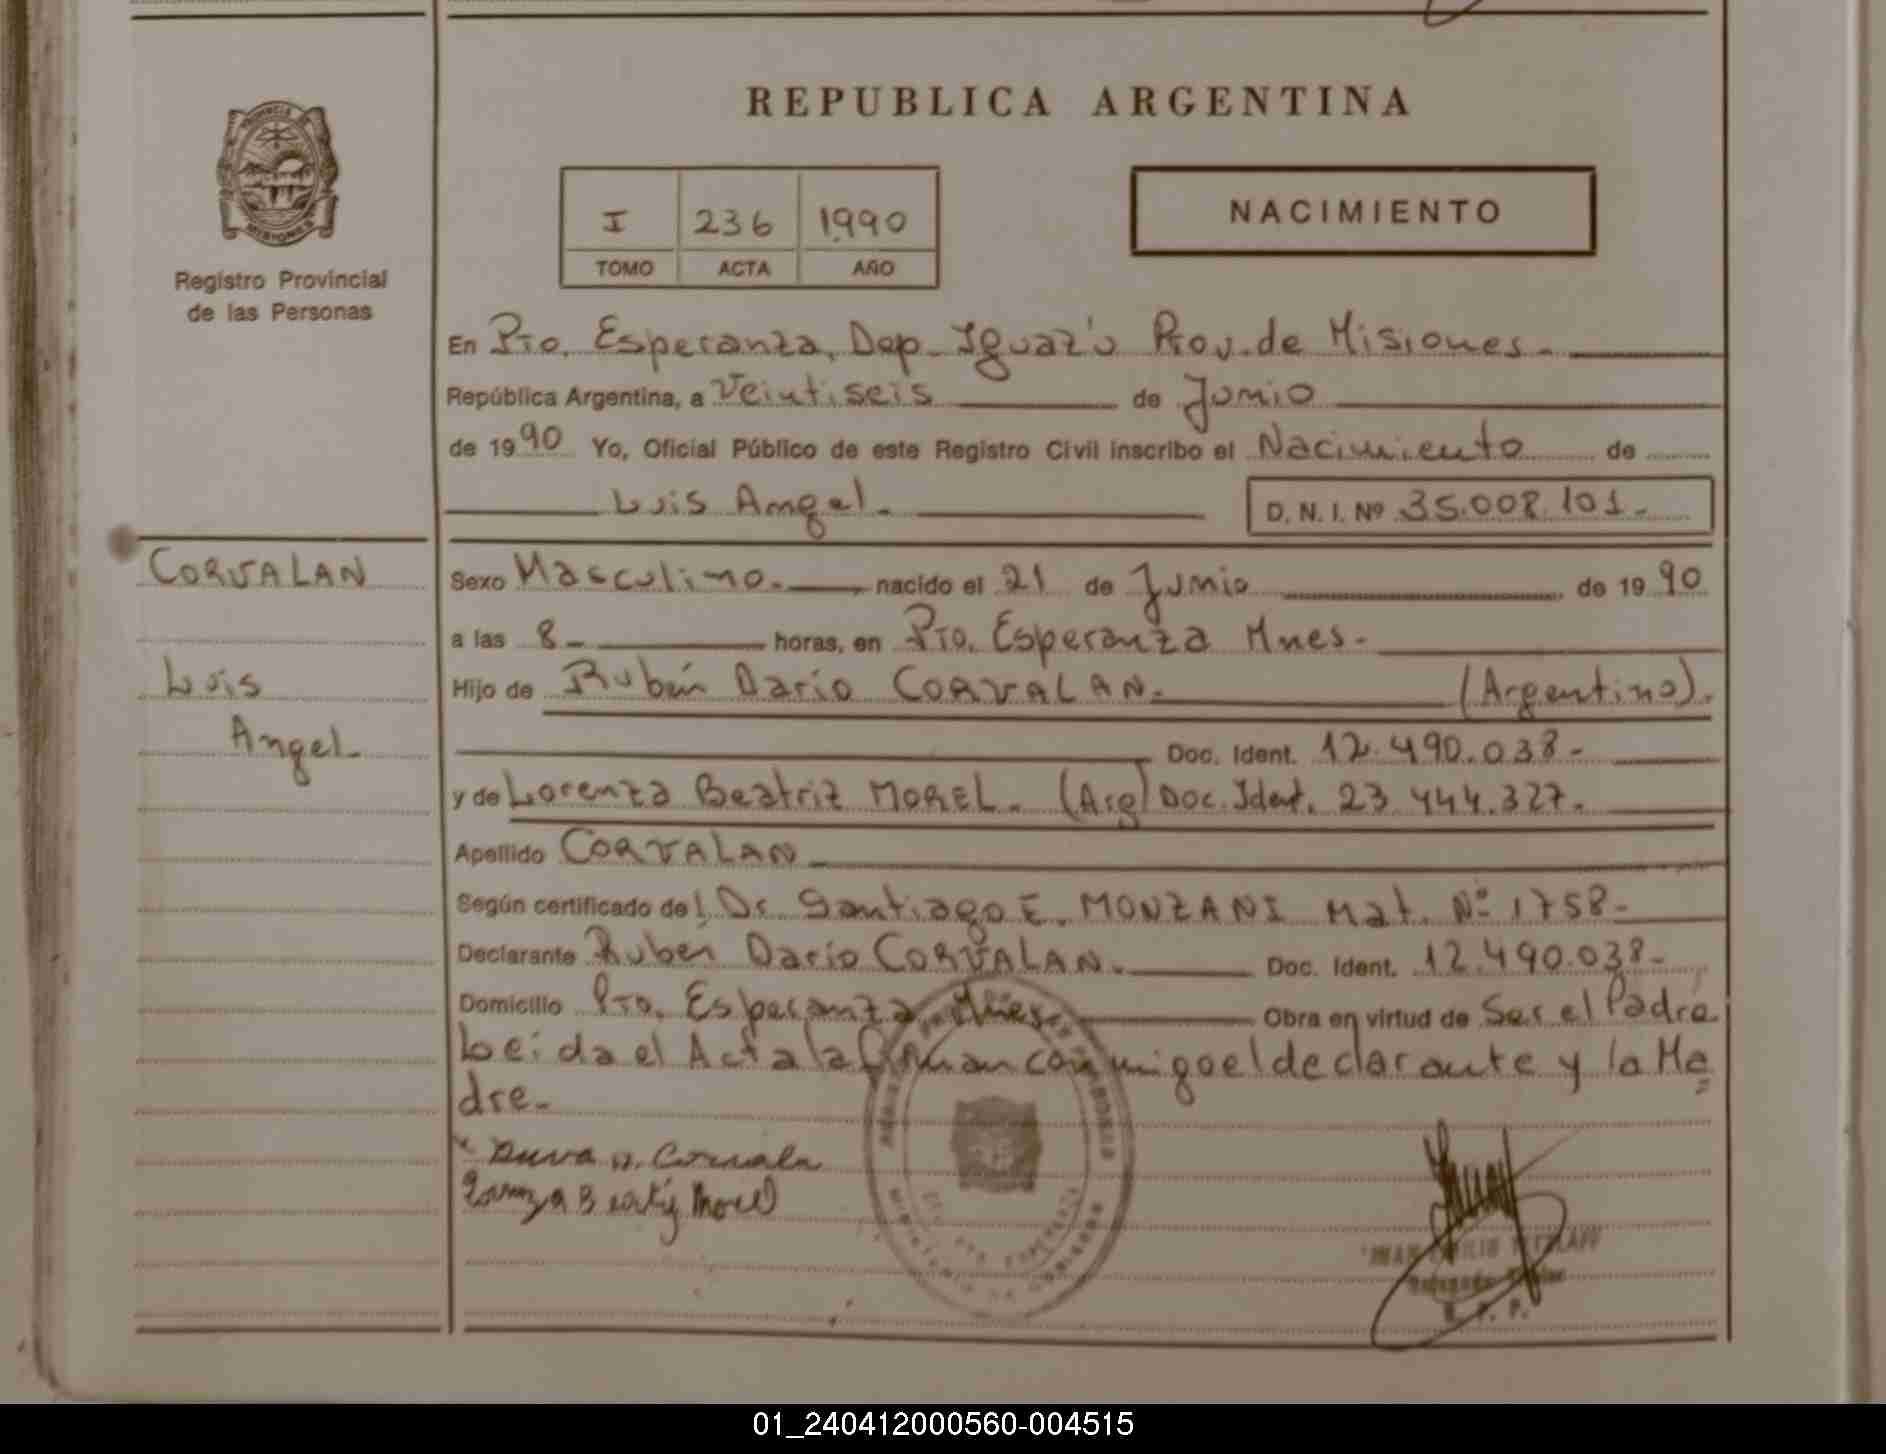 REPUBLICA ARGENTINA
PROVINCIA
MISIONES
Registro Provincial
de las Personas
I 236 1990
TOMO ACTA AÑO
NACIMIENTO
En Pto. Esperanza, Dep. Iguazú Prov. de Misiones.
República Argentina, a Veintiseis de Junio
de 1990 Yo, Oficial Público de este Registro Civil inscribo el Nacimiento de
Luis Angel. D. N. I. Nº 35.008.101.-
CORVALAN
Luis
Angel
Sexo Masculino. nacido el 21 de Junio de 1990
a las 8- horas, en Pto. Esperanza Mnes.
Hijo de Rubén Dario CORVALAN. (Argentino).
Doc. Ident. 12.490.038-
y de Lorenza Beatriz MOREL. (Arg) Doc. Ident. 23.444.327.
Apellido CORVALAN
Según certificado del Dr. Santiago E. MONZANI Mat. Nº 1758-
Declarante Rubén Dario CORVALAN. Doc. Ident. 12.490.038-
Domicilio Pto. Esperanza Mnes. Obra en virtud de Ser el Padre
Leida el Acta la firman conmigo el declarante y la Ma
dre.
MINISTERIO DE GOBIERNO
R. P. P.
01_240412000560-004515